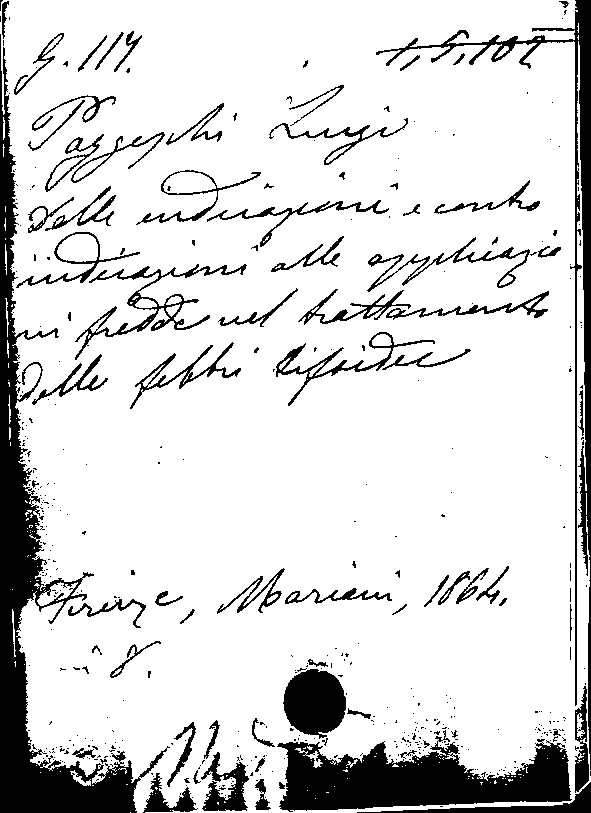 G. 117. 1, 5, 102
Luigi
Delle indicazioni e contro
indicazioni alle applicazio
ni fredde nel trattamento
delle febbri tifoidee
Firenze, Mariani, 1864.
in 8.